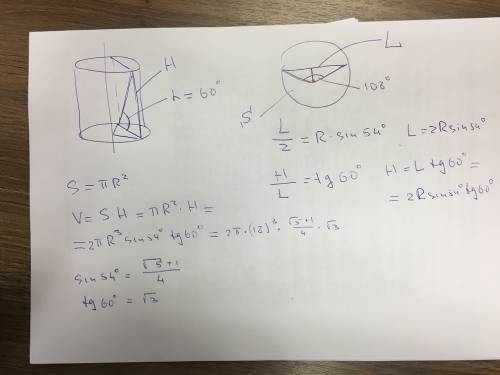 H
L = 60°
L
108°
S
L/2 = R · sin 54°  L = 2R sin 54°
H/L = tg 60°  H = L tg 60° =
= 2R sin 54° tg 60°
S = πR²
V = S·H = πR²·H =
= 2πR³ sin 54° tg 60° = 2π·(12)³ · (√5+1)/4 · √3
sin 54° = (√5+1)/4
tg 60° = √3